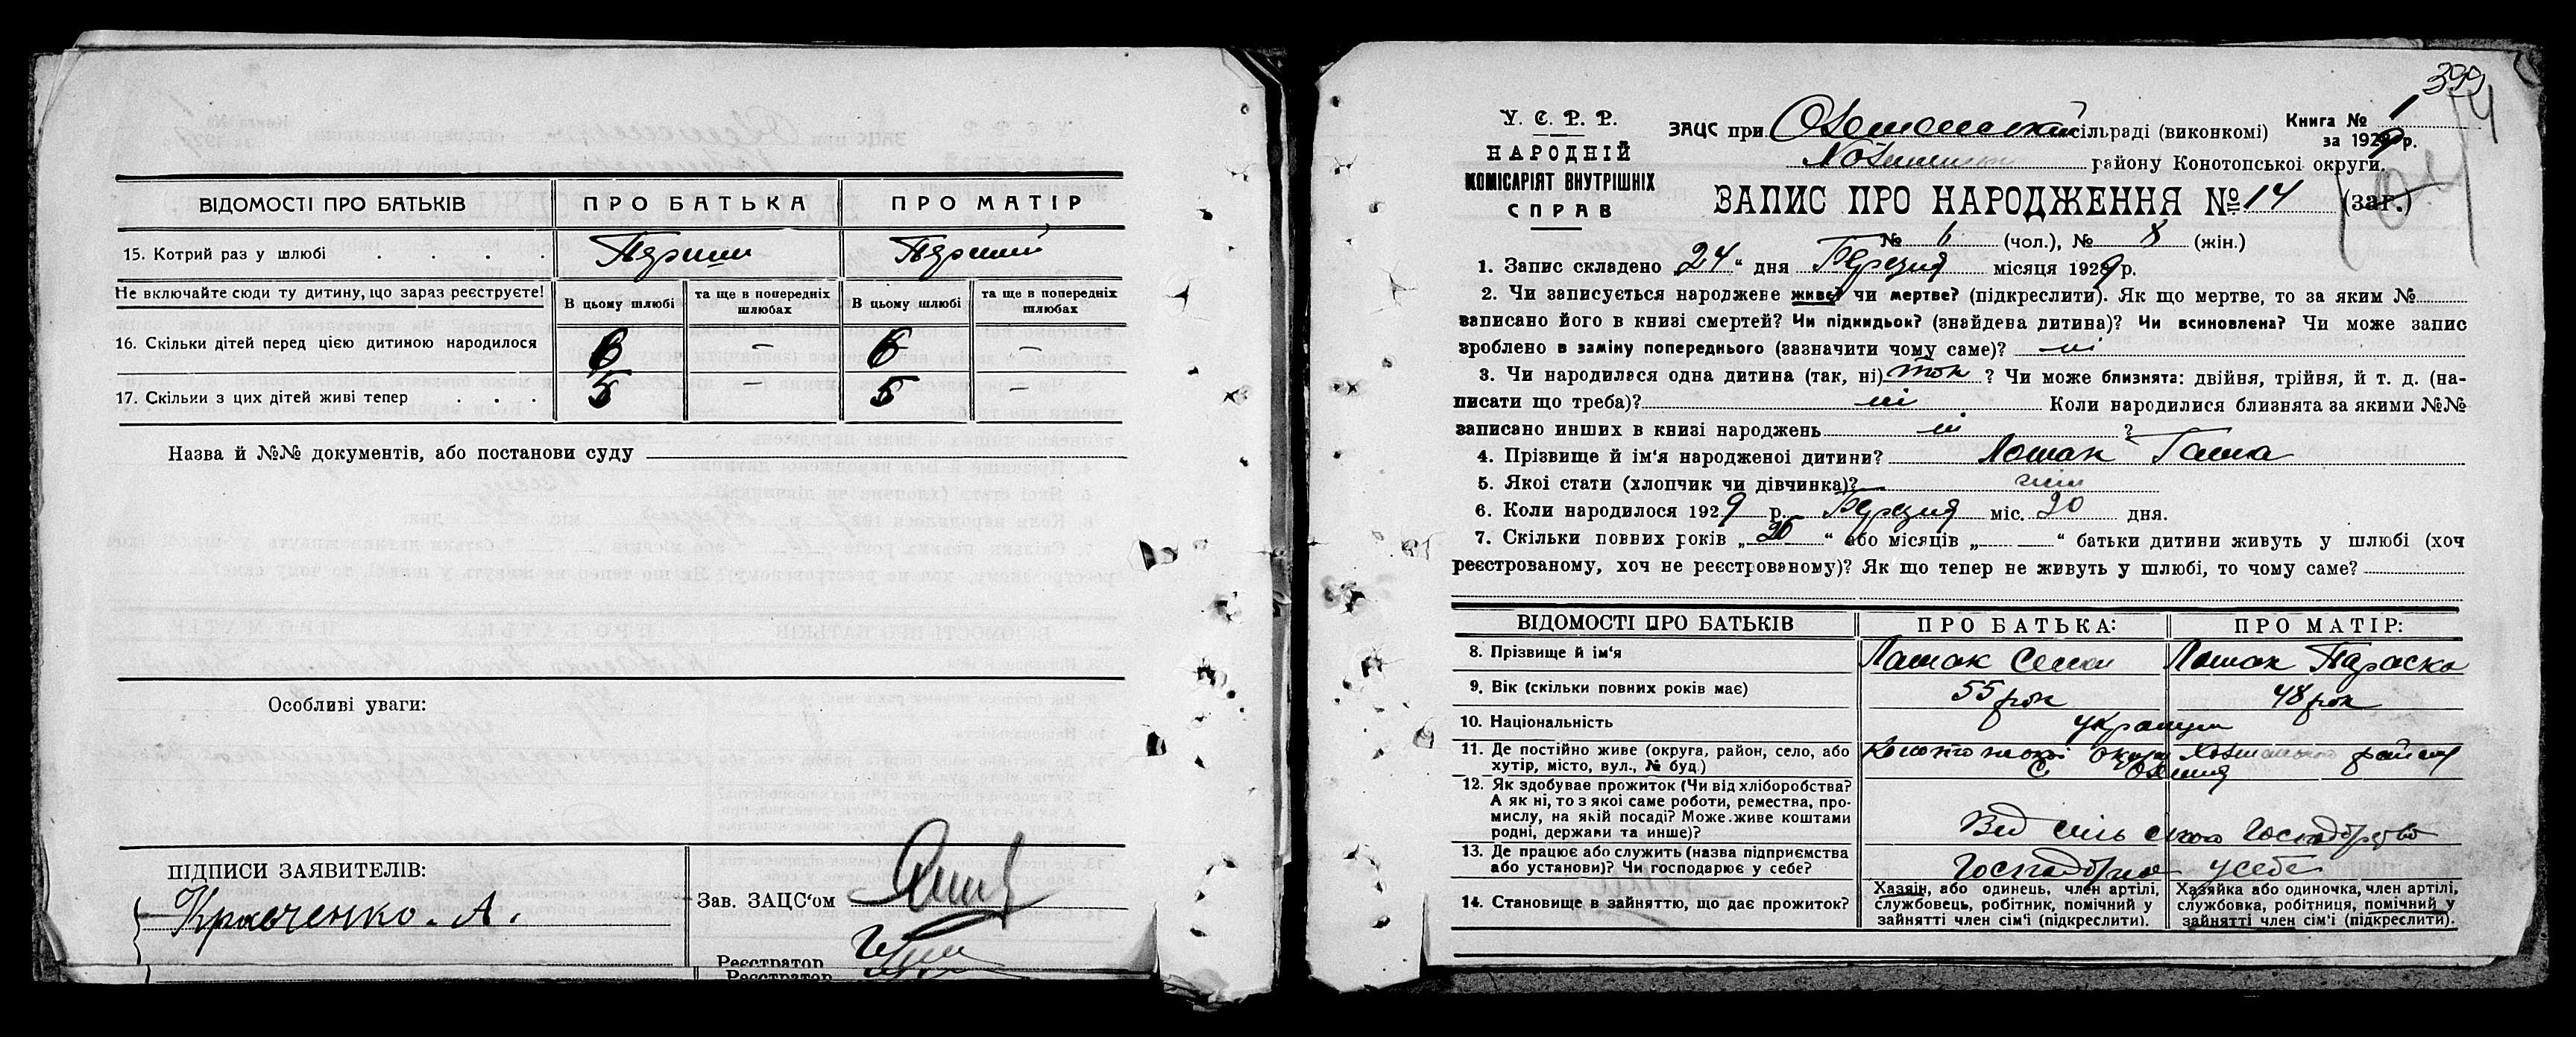 ВІДОМОСТІ ПРО БАТЬКІВ ПРО БАТЬКА ПРО МАТІР
15. Котрий раз у шлюбі Перший Перший
Не включайте сюди ту дитину, що зараз реєструєте! В цьому шлюбі та ще в попередніх шлюбах В цьому шлюбі та ще в попередніх шлюбах
16. Скільки дітей перед цією дитиною народилося 6 — 6 —
17. Скільки з цих дітей живі тепер 5 — 5 —
Назва й №№ документів, або постанови суду
Особливі уваги:
ПІДПИСИ ЗАЯВИТЕЛІВ:
Кравченко. А.
Зав. ЗАЦС'ом
Реєстратор
Реєстратор
399
У. С. Р. Р.
НАРОДНІЙ
КОМІСАРІЯТ ВНУТРІШНІХ
СПРАВ
ЗАЦС при сільраді (виконкомі) Книга № 1
за 1929 р.
району Конотопської округи.
ЗАПИС ПРО НАРОДЖЕННЯ № 14 (заг.)
№ 6 (чол.), № 8 (жін.)
1. Запис складено 24 " дня Березня місяця 1929 р.
2. Чи записується народжене живе? чи мертве? (підкреслити). Як що мертве, то за яким №
записано його в книзі смертей? Чи підкидьок? (знайдена дитина)? Чи всиновлена? Чи може запис
зроблено в заміну попереднього (зазначити чому саме)? ні
3. Чи народилася одна дитина (так, ні) так ? Чи може близнята: двійня, трійня, й т. д. (на-
писати що треба)? ні Коли народилися близнята за якими №№
записано инших в книзі народжень ні ?
4. Прізвище й ім'я народженої дитини? Лошак Ганна
5. Якої стати (хлопчик чи дівчинка)? жін
6. Коли народилося 1929 р. Березня міс. 20 дня.
7. Скільки повних років „ 26 " або місяців „ — " батьки дитини живуть у шлюбі (хоч
реєстрованому, хоч не реєстрованому)? Як що тепер не живуть у шлюбі, то чому саме?
ВІДОМОСТІ ПРО БАТЬКІВ ПРО БАТЬКА: ПРО МАТІР:
8. Прізвище й ім'я Лошак Семен Лошак Параска
9. Вік (скільки повних років має) 55 рок 48 рок
10. Національність українці
11. Де постійно живе (округа, район, село, або
хутір, місто, вул., № буд.) Конотопської округи району
с.
12. Як здобуває прожиток (Чи від хліборобства?
А як ні, то з якої саме роботи, ремества, про-
мислу, на якій посаді? Може живе коштами
родні, держави та инше)? Від сільського господарства
13. Де працює або служить (назва підприємства
або установи)? Чи господарює у себе? Господарює у себе
14. Становище в зайняттю, що дає прожиток? Хазяін, або одинець, член артілі, службовець, робітник, помічний у зайнятті член сім'ї (підкреслити). Хазяйка або одиночка, член артілі, службовка, робітниця, помічний у зайнятті член сім'ї (підкреслити).